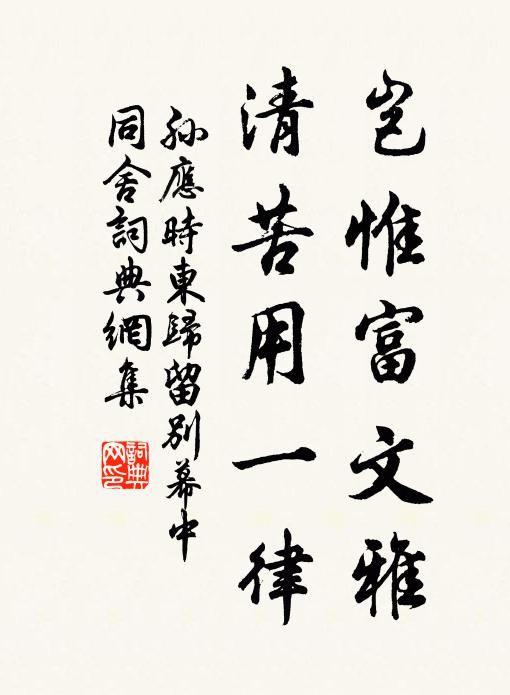 豈惟富文雅
清苦用一律
孫應時東歸留別幕中
同舍詞典網集
詞典
网印